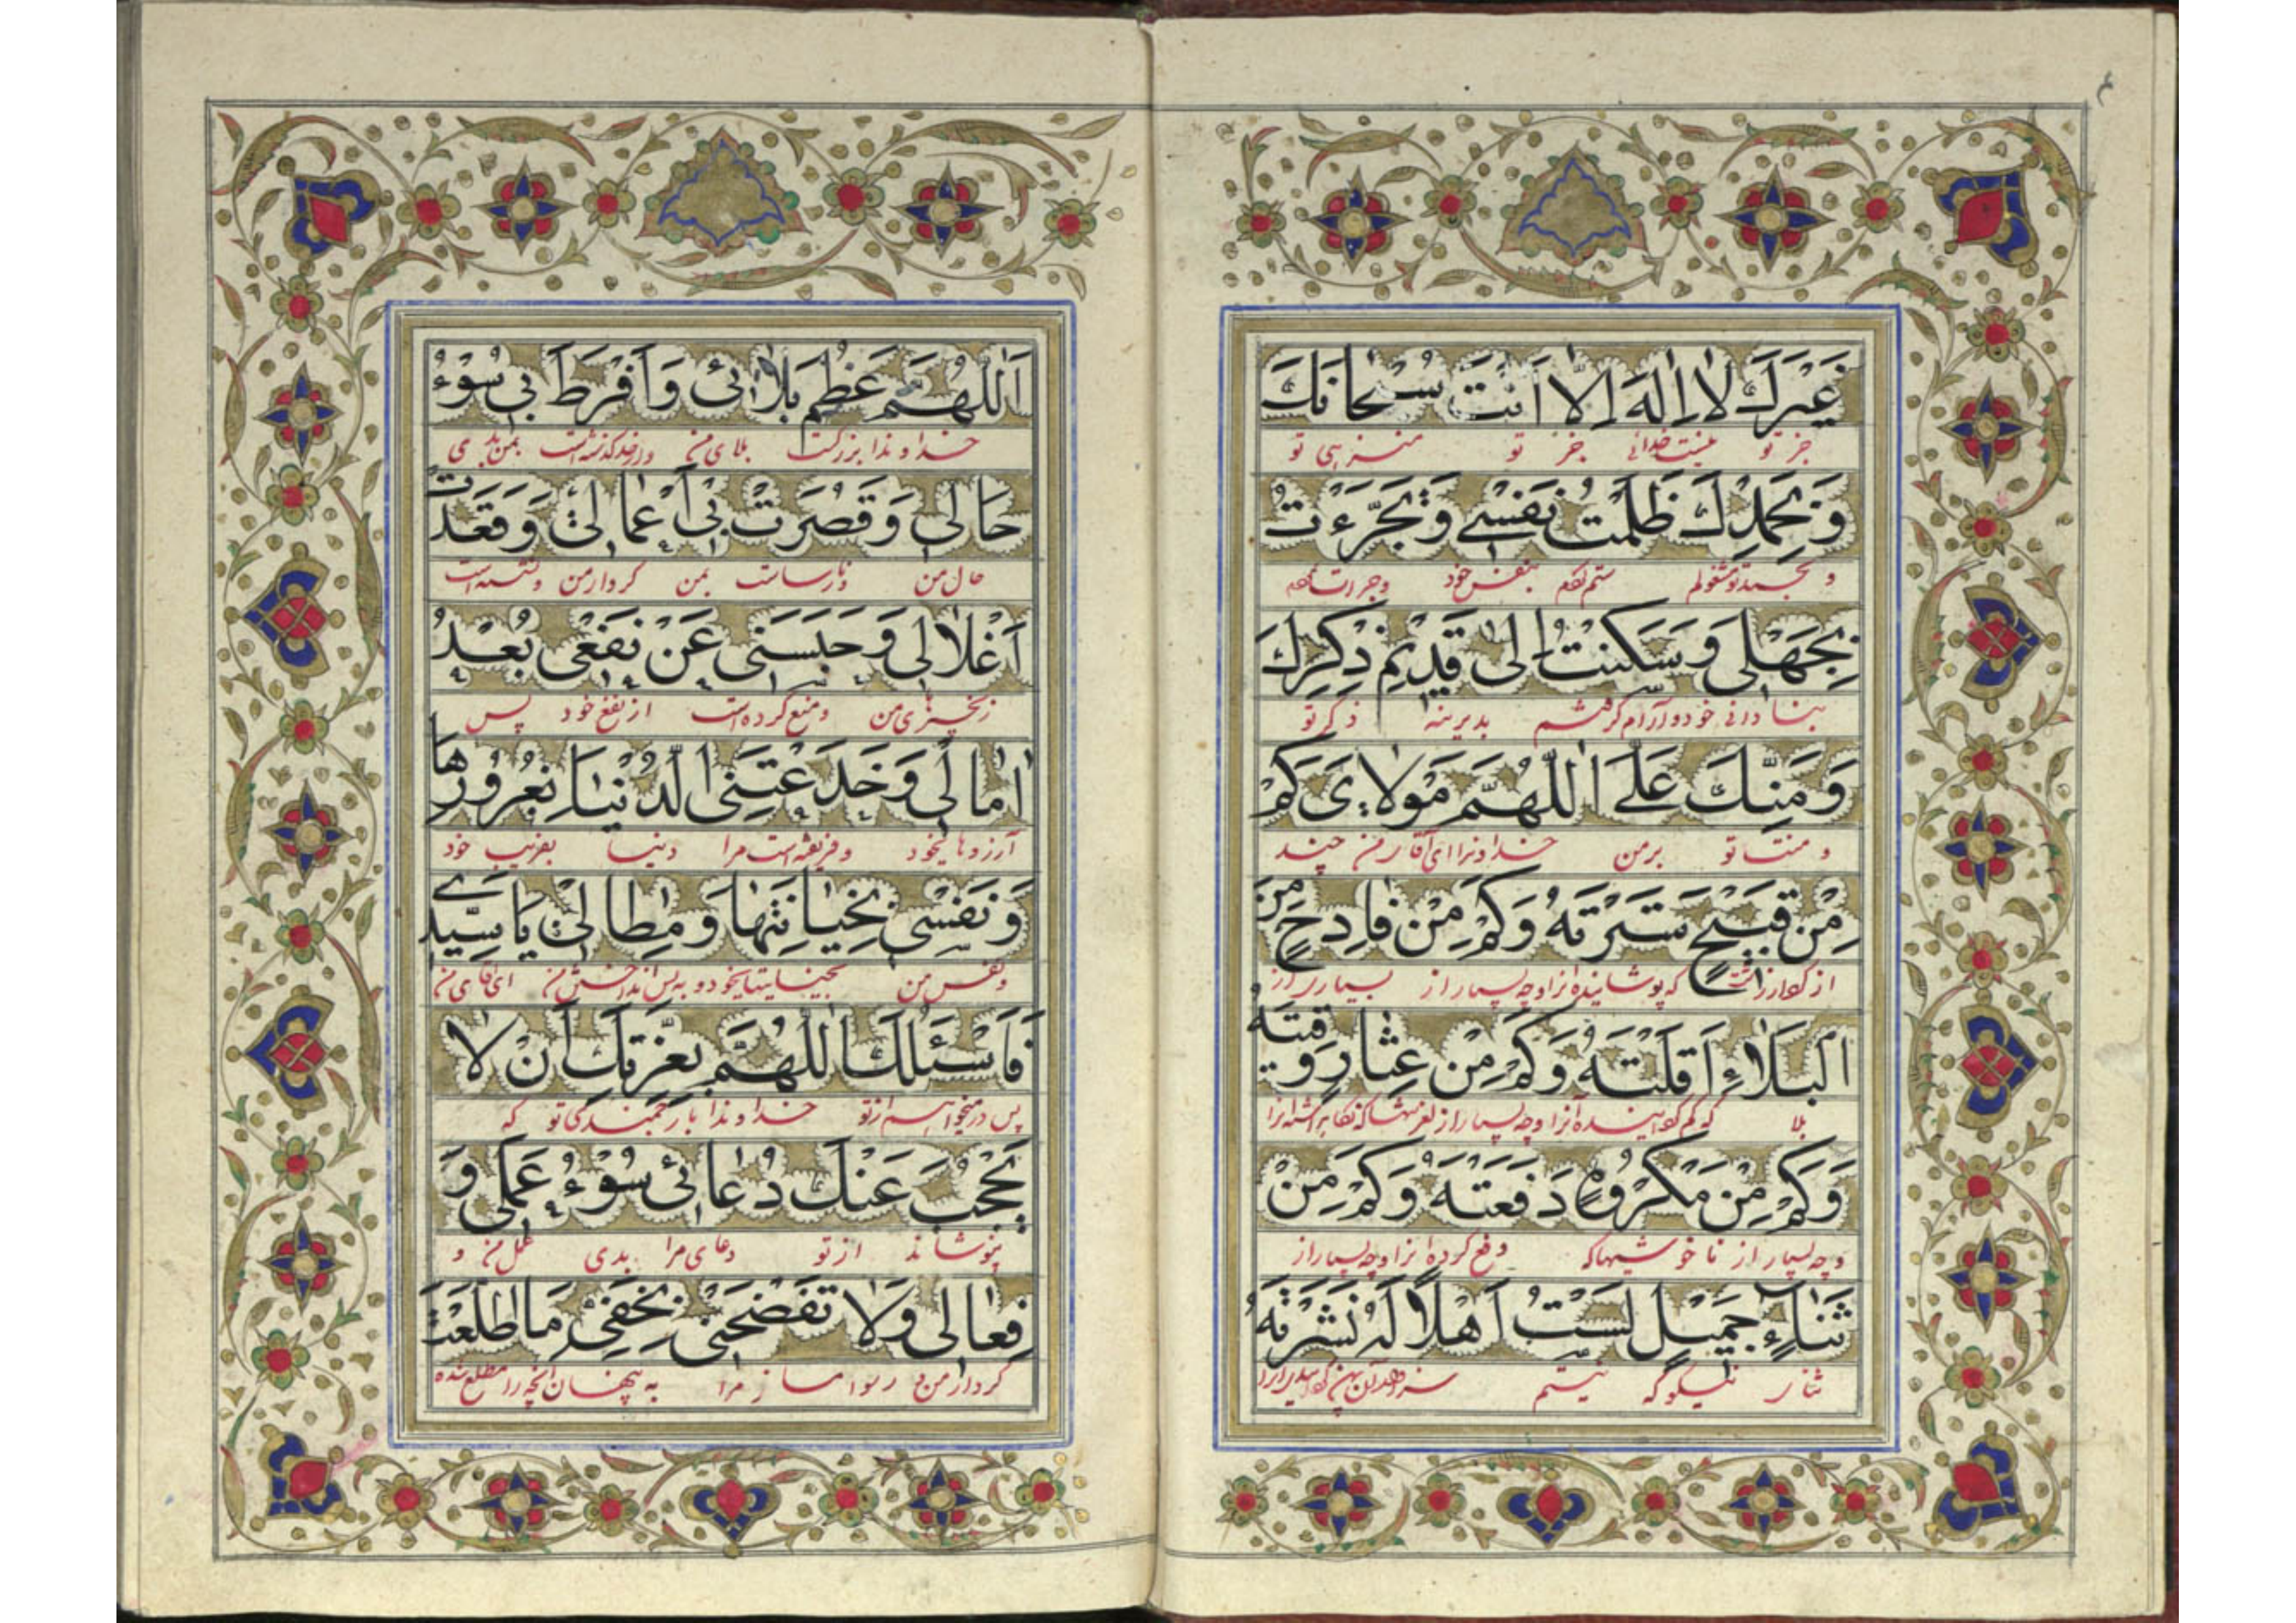 ۴
غَيْرَكَ لا اِلٰهَ اِلّا اَنْتَ سُبْحانَكَ
جز تو نیست خدائی جز تو منزهی تو
وَبِحَمْدِكَ ظَلَمْتُ نَفْسي وَتَجَرَّءْتُ
و بحمد تو مشغولم ستم کردم بنفس خود و جرات
بِجَهْلي وَسَكَنْتُ اِلىٰ قَديمِ ذِكْرِكَ
بنادانی خود و آرام گرفتم بدیرینه ذکر تو
وَمَنِّكَ عَلَيَّ اَللّٰهُمَّ مَوْلايَ كَمْ
و منت تو بر من خداوندا ای آقای من چند
مِنْ قَبيحٍ سَتَرْتَهُ وَكَمْ مِنْ فادِحٍ مِنَ
از که پوشانیده آنرا و چه بسیار از
الْبَلاءِ اَقَلْتَهُ وَكَمْ مِنْ عِثارٍ وَقَيْتَهُ
بلا که آنرا و چه بسیار از
وَكَمْ مِنْ مَكْرُوهٍ دَفَعْتَهُ وَكَمْ مِنْ
و چه بسیار از ناخوشیها که دفع کرده آنرا و چه بسیار از
ثَناءٍ جَميلٍ لَسْتُ اَهْلاً لَهُ نَشَرْتَهُ
ثنای نیکو که نیستم
اَللّٰهُمَّ عَظُمَ بَلائي وَاَفْرَطَ بي سُوءُ
خداوندا بزرگست بلای من و از حد گذشته است بمن بدی
حالي وَقَصُرَتْ بي اَعْمالي وَقَعَدَتْ
حال من و نارساست بمن کردار من
اَغْلالي وَحَبَسَني عَنْ نَفْعي بُعْدُ
زنجیرهای من و منع کرده است از نفع خود پس
اٰمالي وَخَدَعَتْنِي الدُّنْيا بِغُرُورِها
آرزوها یخود و فریفته است مرا دنیا بفریب خود
وَنَفْسي بِخِيانَتِها وَمِطالي يا سَيِّدي
و نفس من ای آقای من
فَاَسْئَلُكَ اللّٰهُمَّ بِعِزَّتِكَ اَنْ لا
پس درمیخواهم از تو خداوندا بارجمندی تو که
يَحْجُبَ عَنْكَ دُعائي سُوءُ عَمَلي وَ
نپوشاند از تو دعای مرا بدی عمل من و
فِعالي وَلا تَفْضَحْني بِخَفِيِّ مَا اطَّلَعْتَ
کردار من و رسوا مساز مرا به پنهان آنچه را مطلع شده